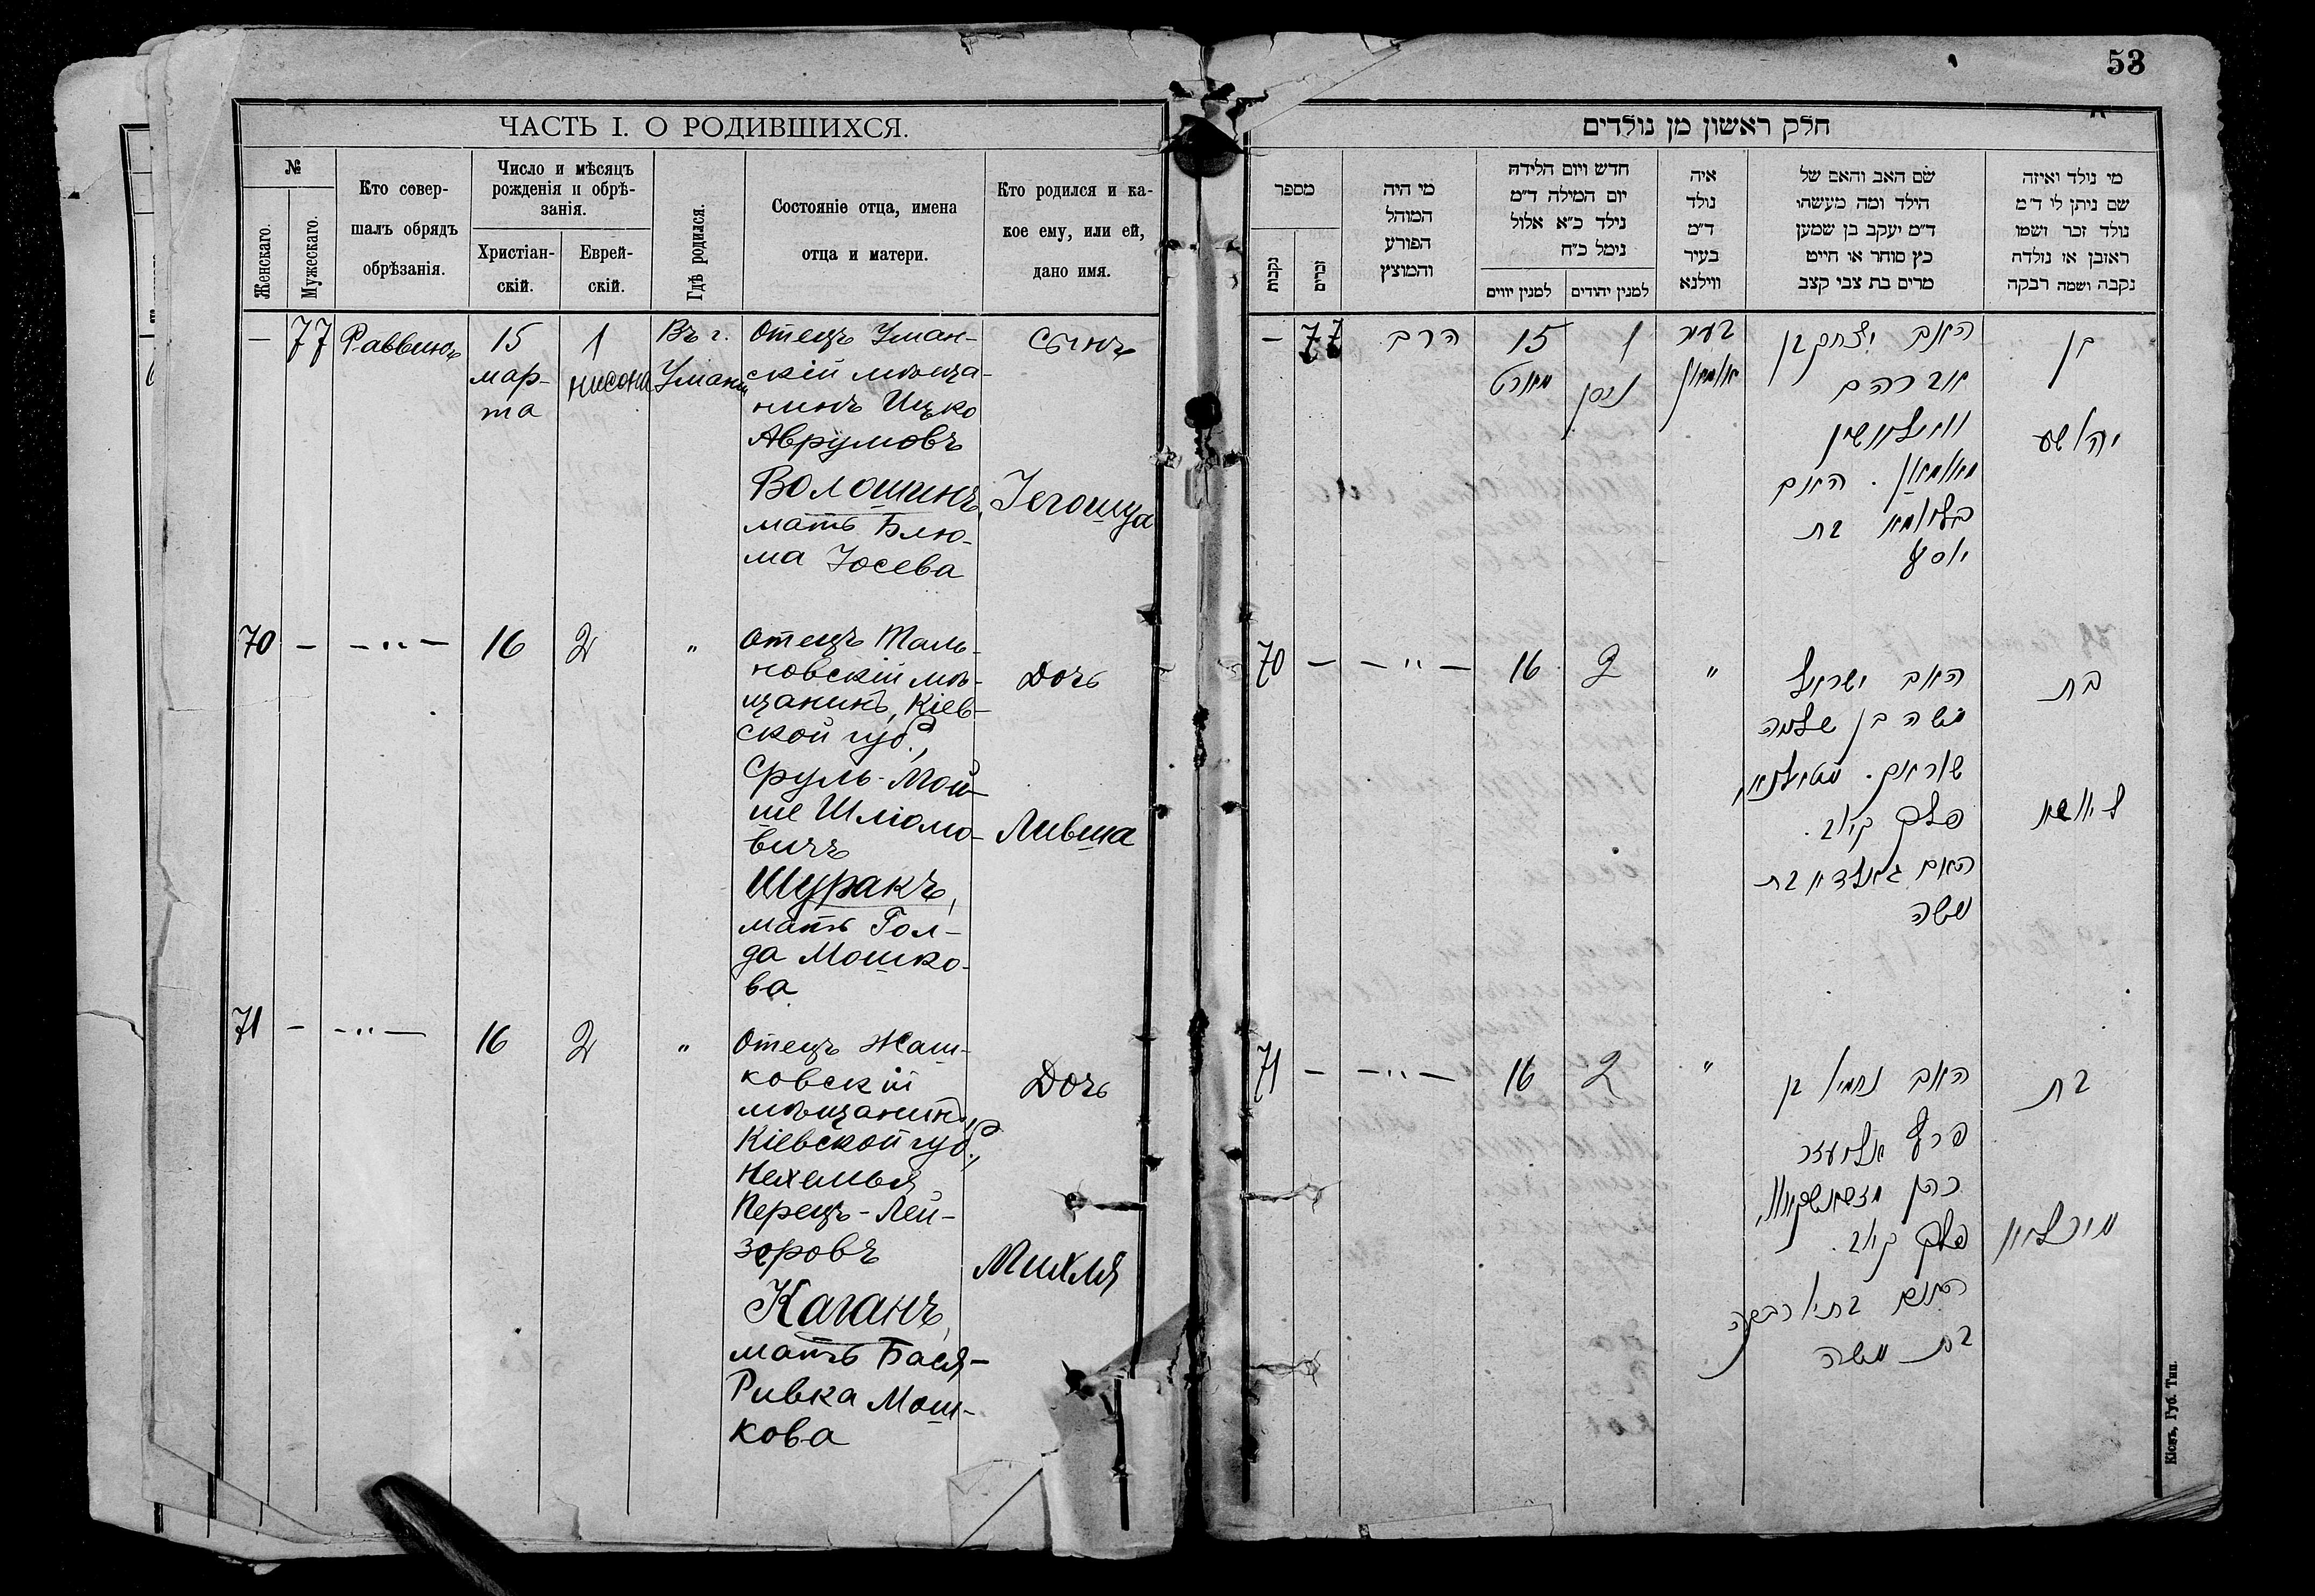 53
ЧАСТЬ I. О РОДИВШИХСЯ.
№
Женскаго.
Мужескаго.
Кто совер-
шалъ обрядъ
обрѣзанія.
Число и мѣсяцъ
рожденія и обрѣ-
занія.
Христіан-
скій.
Еврей-
скій.
Гдѣ родился.
Состояніе отца, имена
отца и матери.
Кто родился и ка-
кое ему, или ей,
дано имя.
— 77 Раввинъ
15
мар-
та
1
нисона
Въ г.
Умани
Отецъ Уман-
скій мѣща-
нинъ Ицко
Аврумовъ
Волошинъ,
мать Блю-
ма Іосева
Сынъ
Іегошуа
70 — — " — 16 2 "
Отецъ Таль-
новскій мѣ-
щанинъ, Кіев-
ской губ.,
Сруль-Мой-
ше Шліомо-
вичъ
Шуракъ,
мать Гол-
да Мошко-
ва
Дочь
Ливша
71 — — " — 16 2 "
Отецъ Жаш-
ковскій
мѣщанинъ,
Кіевской губ.,
Нехемья
Перецъ-Лей-
зоровъ
Каганъ,
мать Бася-
Ривка Мош-
кова
Дочь
Михля
חלק ראשון מן נולדים
מספר
נקבות
זכרים
מי היה
המוהל
הפורע
והמוצץ
חדש ויום הלידה
יום המילה ד״מ
נילד כ״א אלול
נימל כ״ח
למנין יווים
למנין יהודים
איה
נולד
ד״מ
בעיר
ווילנא
שם האב והאם של
הילד ומה מעשהו
ד״מ יעקב בן שמעון
כץ סוחר או חייט
מרים בת צבי קצב
מי נולד ואיזה
שם ניתן לו ד״מ
נולד זכר ושמו
ראובן או נולדה
נקבה ושמה רבקה
— 77 הרב
15
מארט
1
ניסן
בעיר
אומאן
האב יצחק בן
אברהם
וואלושין
מאומאן. האם
בלומא בת
יוסף
בן
יהושע
70 — — " — 16 2 "
האב ישראל
משה בן שלמה
שוראק.
פלך קיוב.
האם גאלדא בת
משה
בת
71 — — " — 16 2 "
האב נחמי׳ בן
פרץ אליעזר
כהן
פלך קיוב.
האם בתי׳ רבקה
בת משה
בת
מיכליא
Кіевъ, Губ. Тип.